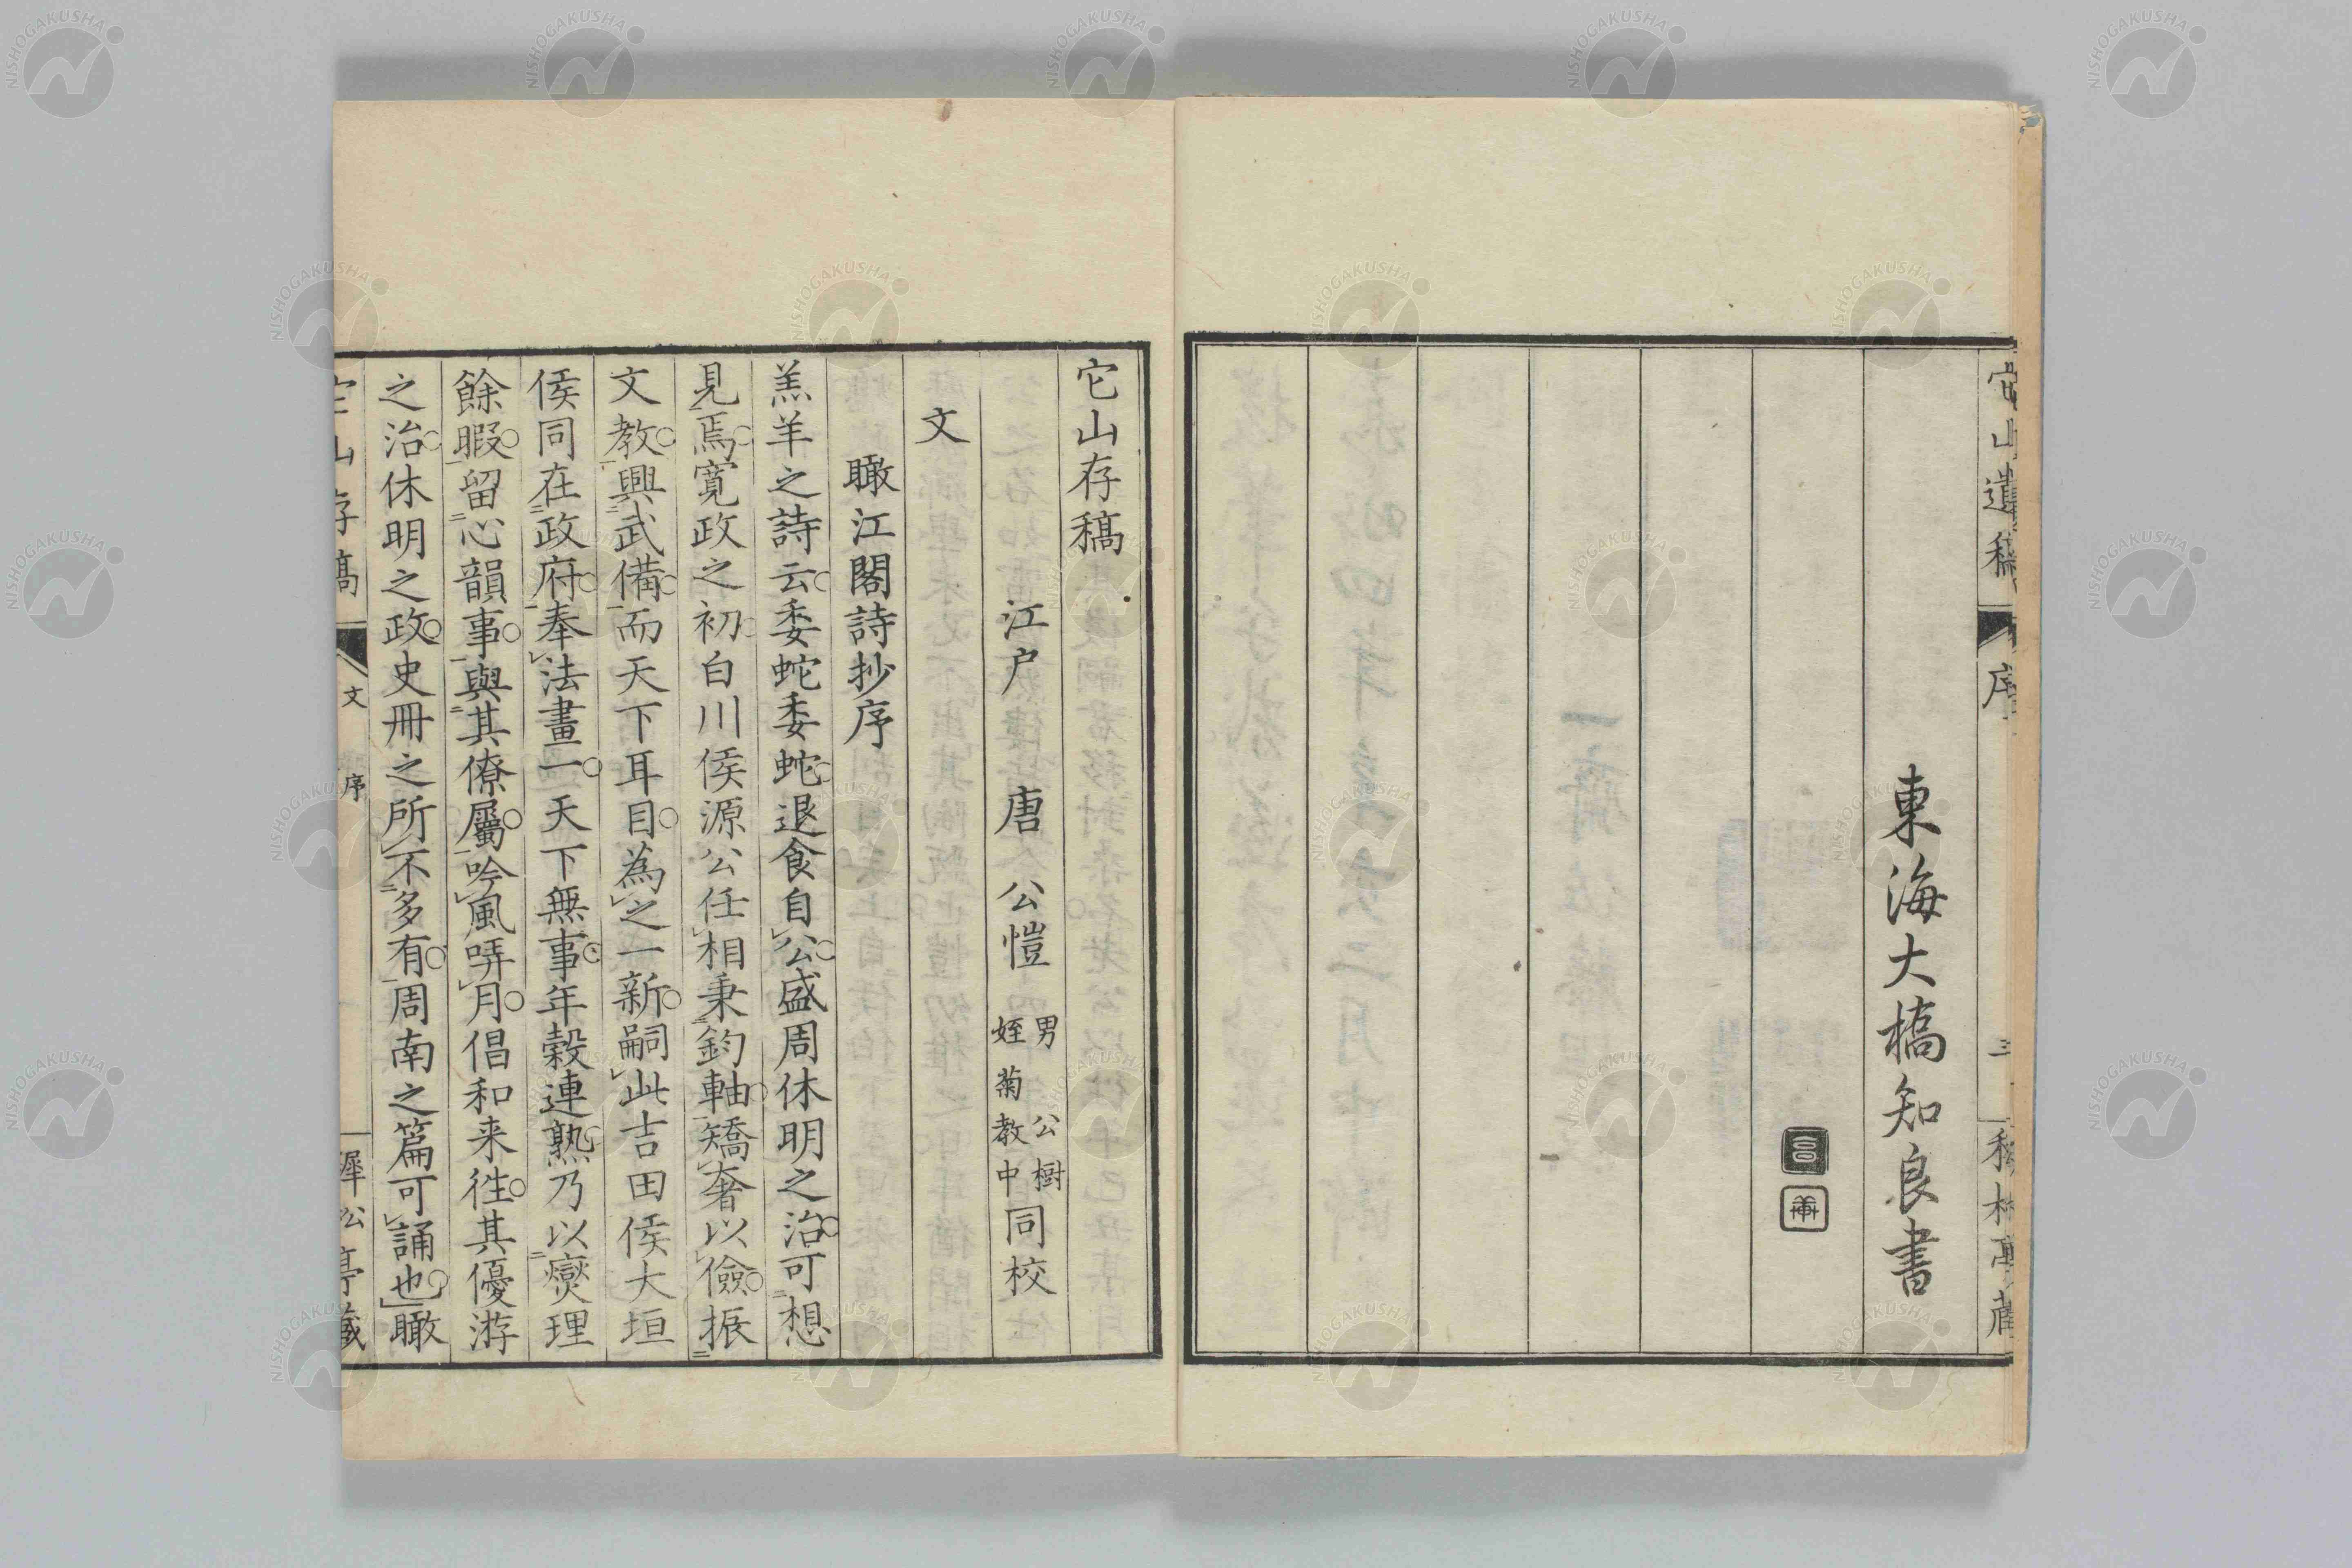 它山遺稿
序
三
東海大橋知良書
它山存稿
江户 唐 公愷 男 公樹 姪 菊教中 同校
文
瞰江閣詩抄序
羔羊之詩云委蛇委蛇退食自公盛周休明之治可想
見焉寛政之初白川侯源公任相秉鈞軸矯奢以儉振
文教興武備而天下耳目為之一新嗣此吉田侯大垣
侯同在政府奉法畫一天下無事年穀連熟乃以爕理
餘暇留心韻事與其僚屬吟風哢月倡和来徃其優游
之治休明之政史冊之所不多有周南之篇可誦也瞰
它山存稿
文 序
NISHOGAKUSHA